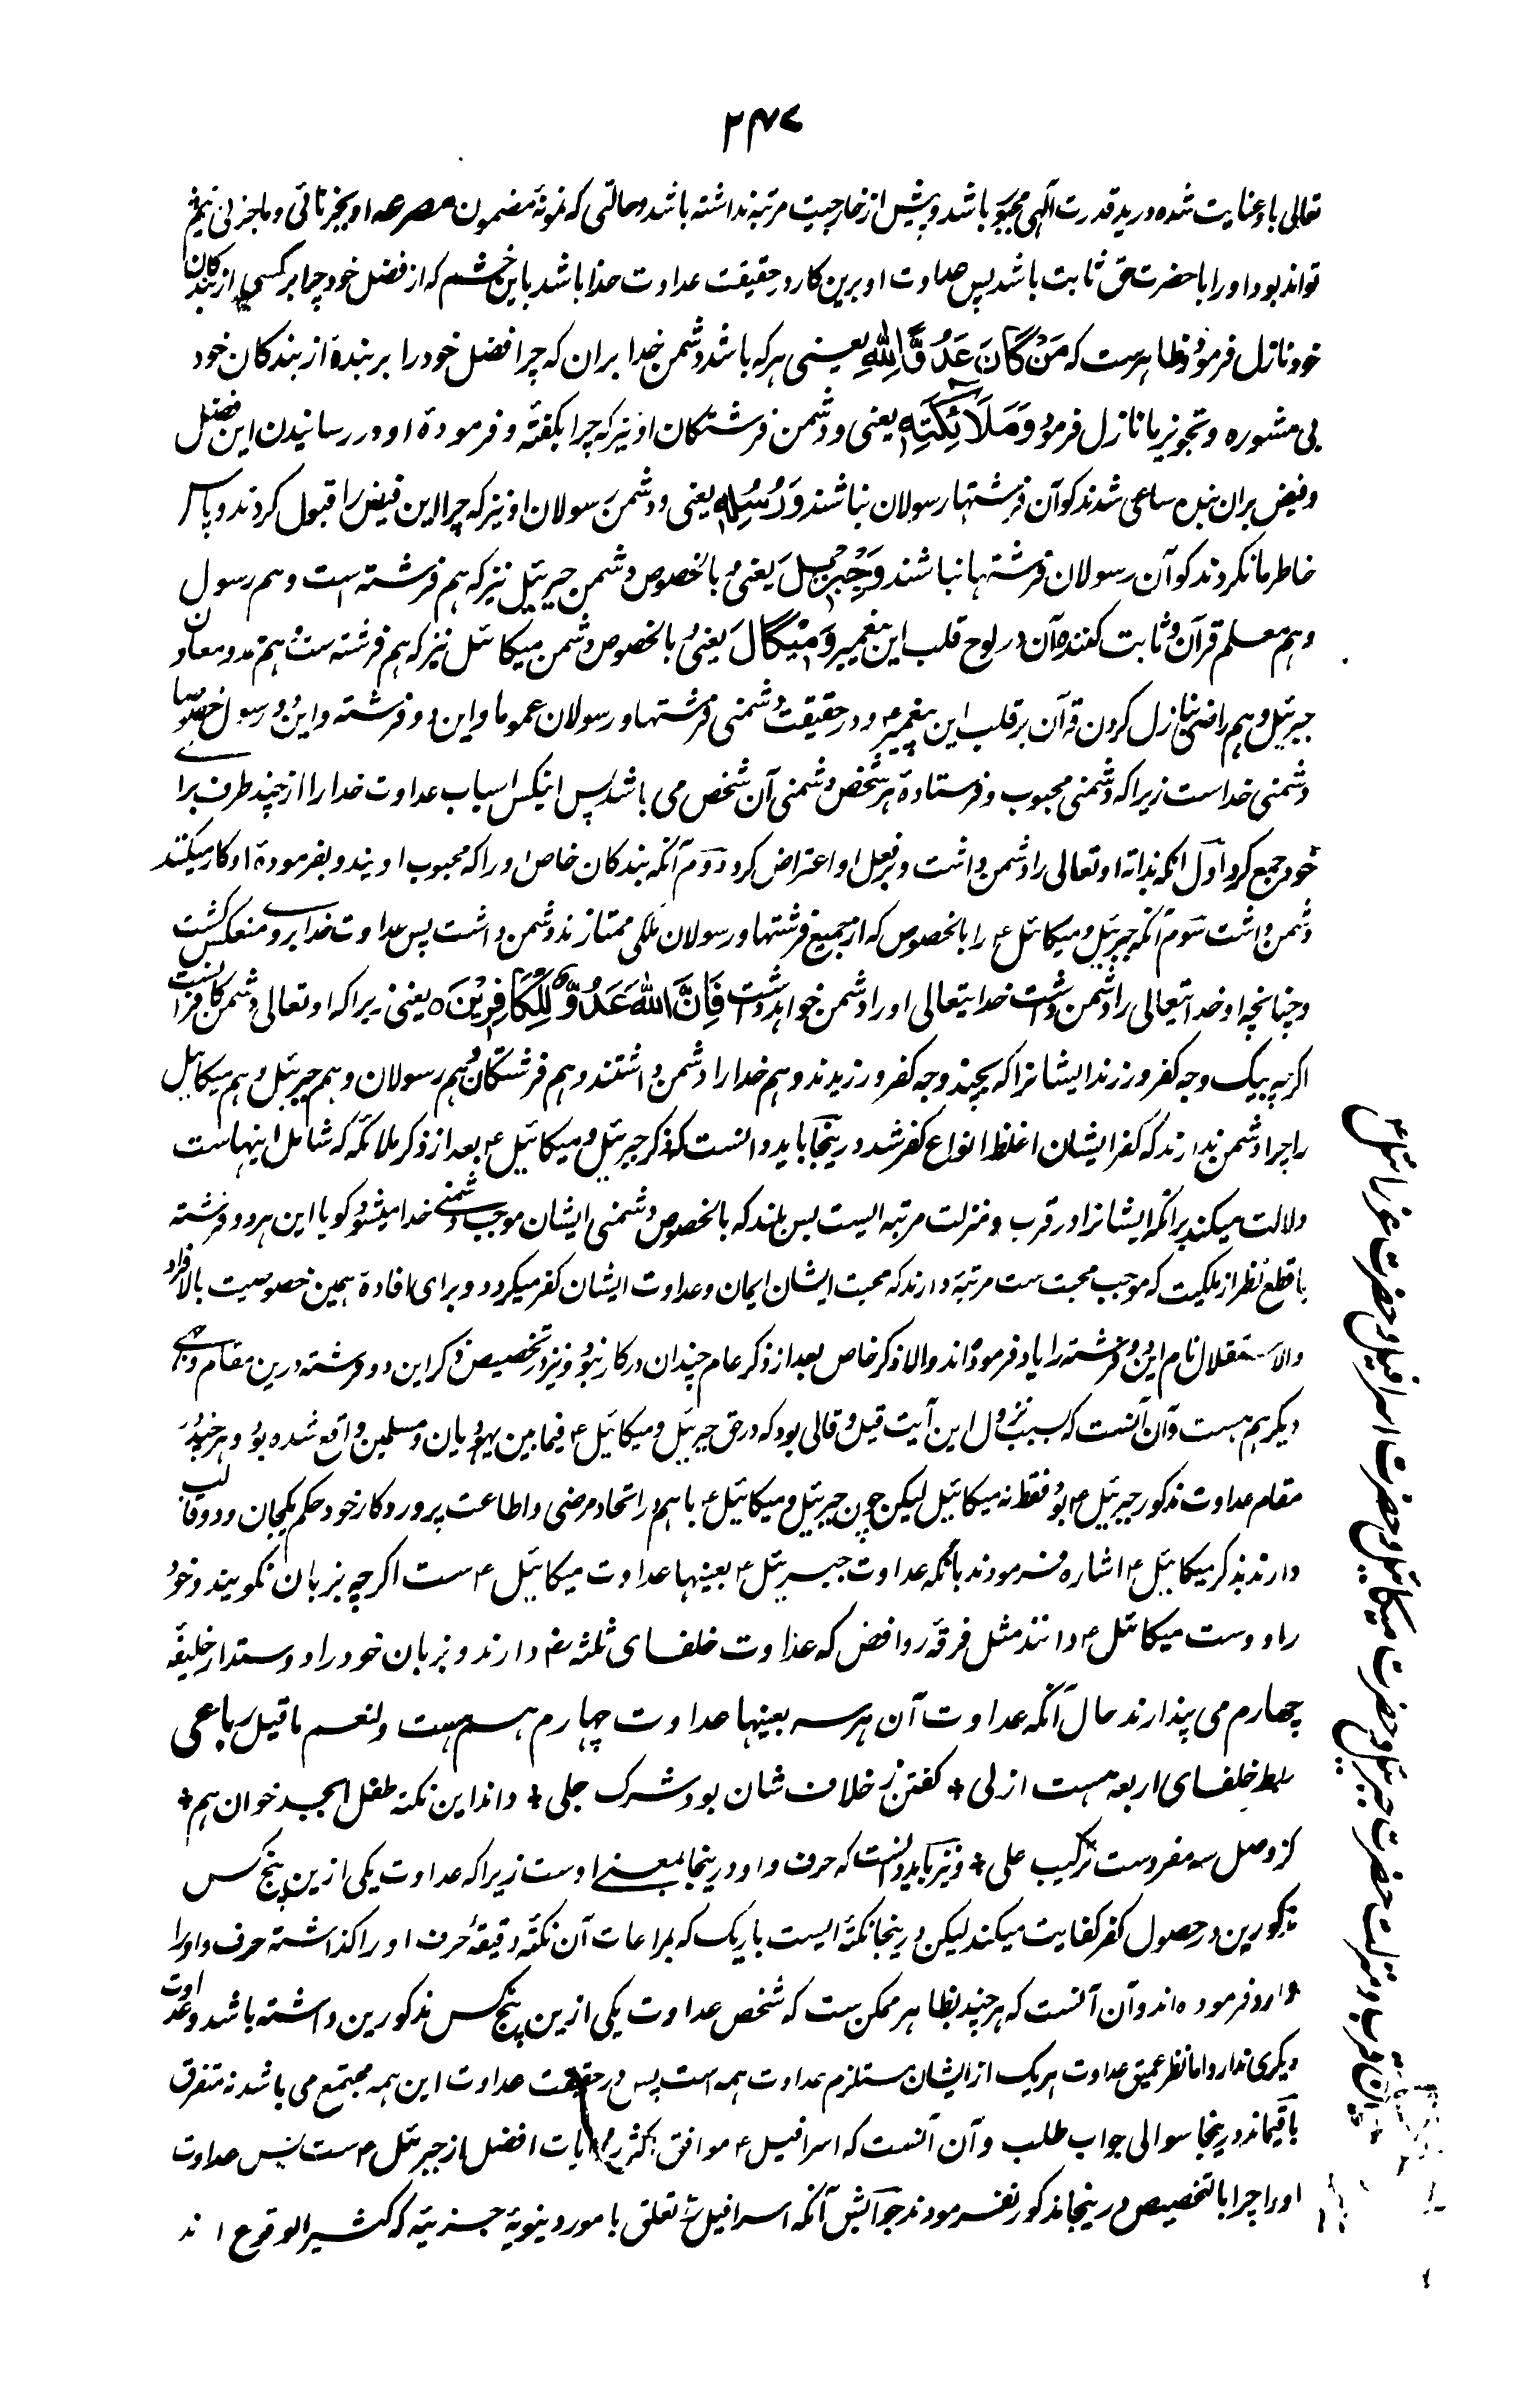 ۳۴۷
تعالی باو عنایت شده در ید قدرت الٓهی مجبور باشد و پیش از خارجیت مرتبه نداشته باشد و حالتی که نمونهٔ مضمون مصرعه او بجز نائی و ما جز نی نیم
تواند بود او را با حضرت حق ثابت باشد پس عداوت او برین کار در حقیقت عداوت خدا باشد باین خشم که از فضل خود چرا بر کسی از بندکان
خود نازل فرمود و ظاهرست که مَنْ كَانَ عَدُوًّا لِلّٰهِ یعنی هر که باشد دشمن خدا بران که چرا فضل خود را بر بندهٔ از بندکان خود
بی مشوره و تجویز ما نازل فرمود وَمَلَائِكَتِهٖ یعنی و دشمن فرشتکان او نیز که چرا بکفته و فرمودهٔ او در رسانیدن این فضل
و فیض بران بنده ساعی شدند کو آن فرشتها رسولان نباشند وَرُسُلِهٖ یعنی و دشمن رسولان او نیز که چرا این فیض را قبول کردند و پاس
خاطر ما نکردند کو آن رسولان فرشتها نباشند وَجِبْرِيْلَ یعنی و بالخصوص دشمن جبرئیل نیز که هم فرشته است و هم رسول
و هم معلم قرآن و ثابت کننده آن در لوح قلب این پیغمبر وَمِيْكَالَ یعنی و بالخصوص دشمن میکائیل نیز که هم فرشته ست و هم ممد و معاون
جبرئیل و هم راضی بنازل کردن قرآن بر قلب این پیغمبر ؐ و در حقیقت دشمنی فرشتها و رسولان عموما و این دو فرشته و این دو رسول خصوصا
دشمنی خداست زیرا که دشمنی محبوب و فرستادهٔ هر شخص دشمنی آن شخص می باشد پس اینکس اسباب عداوت خدا را از چند طرف برای
خود جمع کرد اول آنکه بذاته او تعالی را دشمن داشت و بر فعل او اعتراض کرد دوم آنکه بندکان خاص او را که محبوب اویند و بفرمودهٔ او کار میکنند
دشمن داشت سوم آنکه جبرئیل و میکائیل ؑ را بالخصوص که از جمیع فرشتها و رسولان ملکی ممتازند دشمن داشت پس عداوت خدا بر وی منعکس کشت
و چنانچه او خدایتعالی را دشمن داشت خدایتعالی او را دشمن خواهد داشت فَاِنَّ اللّٰهَ عَدُوٌّ لِلْكَافِرِيْنَ ۵ یعنی زیرا که او تعالی دشمن کافرانست
اکر به یک وجه کفر ورزند ایشانرا که بچند وجه کفر ورزیدند و هم خدا را دشمن داشتند و هم فرشتکان و هم رسولان و هم جبرئیل و هم میکائیل
را چرا دشمن ندارند که کفر ایشان اغلظ انواع کفر شد درینجا باید دانست که ذکر جبرئیل و میکائیل ؑ بعد از ذکر ملائکه که شامل اینهاست
دلالت میکند برآنکه ایشانرا در قرب و منزلت مرتبه ایست بس بلند که بالخصوص دشمنی ایشان موجب دشمنی خدا میشود کویا این هر دو فرشته
با قطع نظر از ملکیت که موجب محبت ست مرتبهٔ دارند که محبت ایشان ایمان و عداوت ایشان کفر میکردد و برای افادهٔ همین خصوصیت بالافراد
والاستقلال نام این دو فرشته را یاد فرموده اند والا ذکر خاص بعد از ذکر عام چندان درکار نبود و نیز در تخصیص ذکر این دو فرشته درین مقام وجهی
دیکر هم هست و آن آنست که سبب نزول این آیت قیل و قالی بود که در حق جبرئیل و میکائیل ؑ فیما بین یهودیان و مسلمین واقع شده بود و هر چند در
مقام عداوت مذکور جبرئیل ؑ بود فقط نه میکائیل لیکن چون جبرئیل و میکائیل ؑ با هم در اتحاد مرضی و اطاعت پروردکار خود حکم یکجان و دو قالب
دارند بذکر میکائیل ؑ اشاره فرمودند بآنکه عداوت جبرئیل ؑ بعینها عداوت میکائیل ؑ ست اکرچه بزبان نکویند و خود
را دوست میکائیل ؑ دانند مثل فرقهٔ روافض که عداوت خلفای ثلثه رض دارند و بزبان خود را دوستدار خلیفهٔ
چهارم می پندارند حال آنکه عداوت آن هر سه بعینها عداوت چهارم هم هست ولنعم ما قیل رباعی
ربط خلفای اربعه هست ازلی * کفتن ز خلاف شان بود شرک جلی * داند این نکته طفل ابجد خوان هم *
کز وصل سه مفردست ترکیب علی * و نیز باید دانست که حرف واو درینجا بمعنی اوست زیرا که عداوت یکی ازین پنج کس
مذکورین در حصول کفر کفایت میکند لیکن درینجا نکتهٔ ایست باریک که بمراعات آن نکتهٔ دقیقه حرف او را کذاشته حرف واو را
وارد فرموده اند و آن آنست که هر چند بظاهر ممکن ست که شخص عداوت یکی ازین پنج کس مذکورین داشته باشد و عداوت
دیکری ندارد اما نظر عمیق عداوت هر یک از ایشان مستلزم عداوت همه است پس در حقیقت عداوت این همه مجتمع می باشد نه متفرق
باقیماند درینجا سوالی جواب طلب و آن آنست که اسرافیل ؑ موافق اکثر روایات افضل از جبرئیل ؑ ست پس عداوت
او را چرا بالتخصیص درینجا مذکور نفرمودند جوابش آنکه اسرافیل ؑ تعلق بامور دنیویهٔ جزئیه که کثیر الوقوع اند
بیان قرب و منزلت حضرت جبرئیل و حضرت میکائیل و حضرت اسرافیل و حضرت عزرائیل ؑ